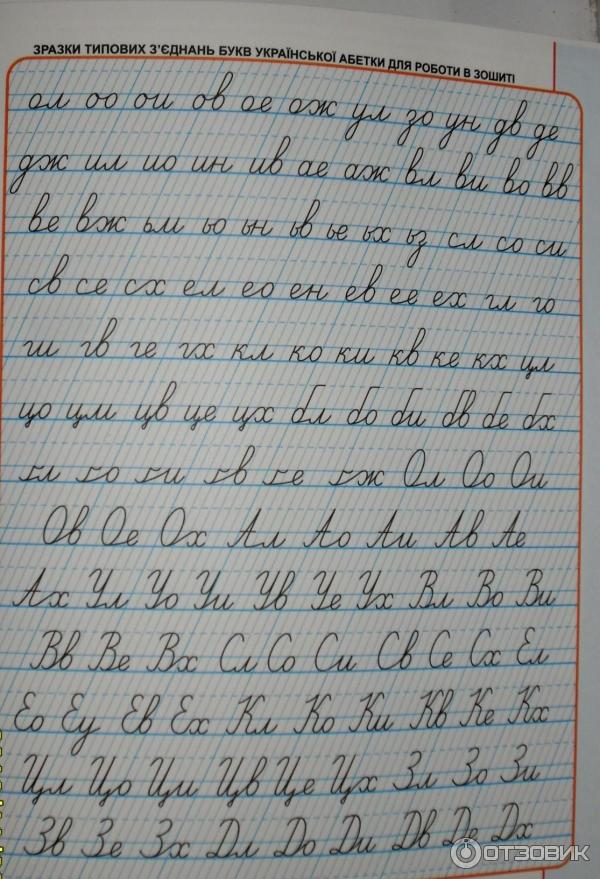 ЗРАЗКИ ТИПОВИХ З'ЄДНАНЬ БУКВ УКРАЇНСЬКОЇ АБЕТКИ ДЛЯ РОБОТИ В ЗОШИТІ
ол оо ои ов ое ож ул зо ун дв де
дж ил ио ин ив ае аж вл ви во вв
ве вж ьм ьо ьн ьв ье ьх ьз сл со си
св се сх ел ео ен ев ее ех гл го
ги гв ге гх кл ко ки кв ке кх цл
цо ци цв це цх бл бо би бв бе бх
ґл ґо ґи ґв ґе ґж Ол Оо Ои
Ов Ое Ох Ал Ао Аи Ав Ае
Ах Ул Уо Уи Ув Уе Ух Вл Во Ви
Вв Ве Вх Сл Со Си Св Се Сх Ел
Ео Еу Ев Ех Кл Ко Ки Кв Ке Кх
Цл Цо Ци Цв Це Цх Зл Зо Зи
Зв Зе Зх Дл До Ди Дв Де Дх
ОТЗОВИК